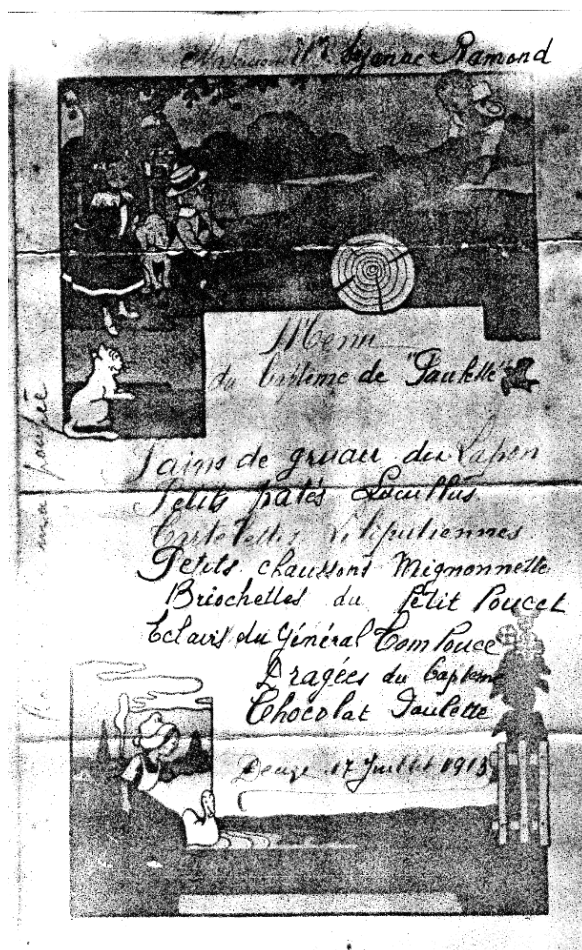 Mademoiselle Lyanne Ramond
Menu
du baptême de "Paulette"
Pains de gruau du Lapon
Petits patés Lucullus
Tartelettes Liliputiennes
Petits chaussons Mignonnette
Briochelles du Petit Poucet
Eclairs du Général Tom Pouce
Dragées du bapteme
Chocolat Paulette
17 Juillet 1913
ma poupée